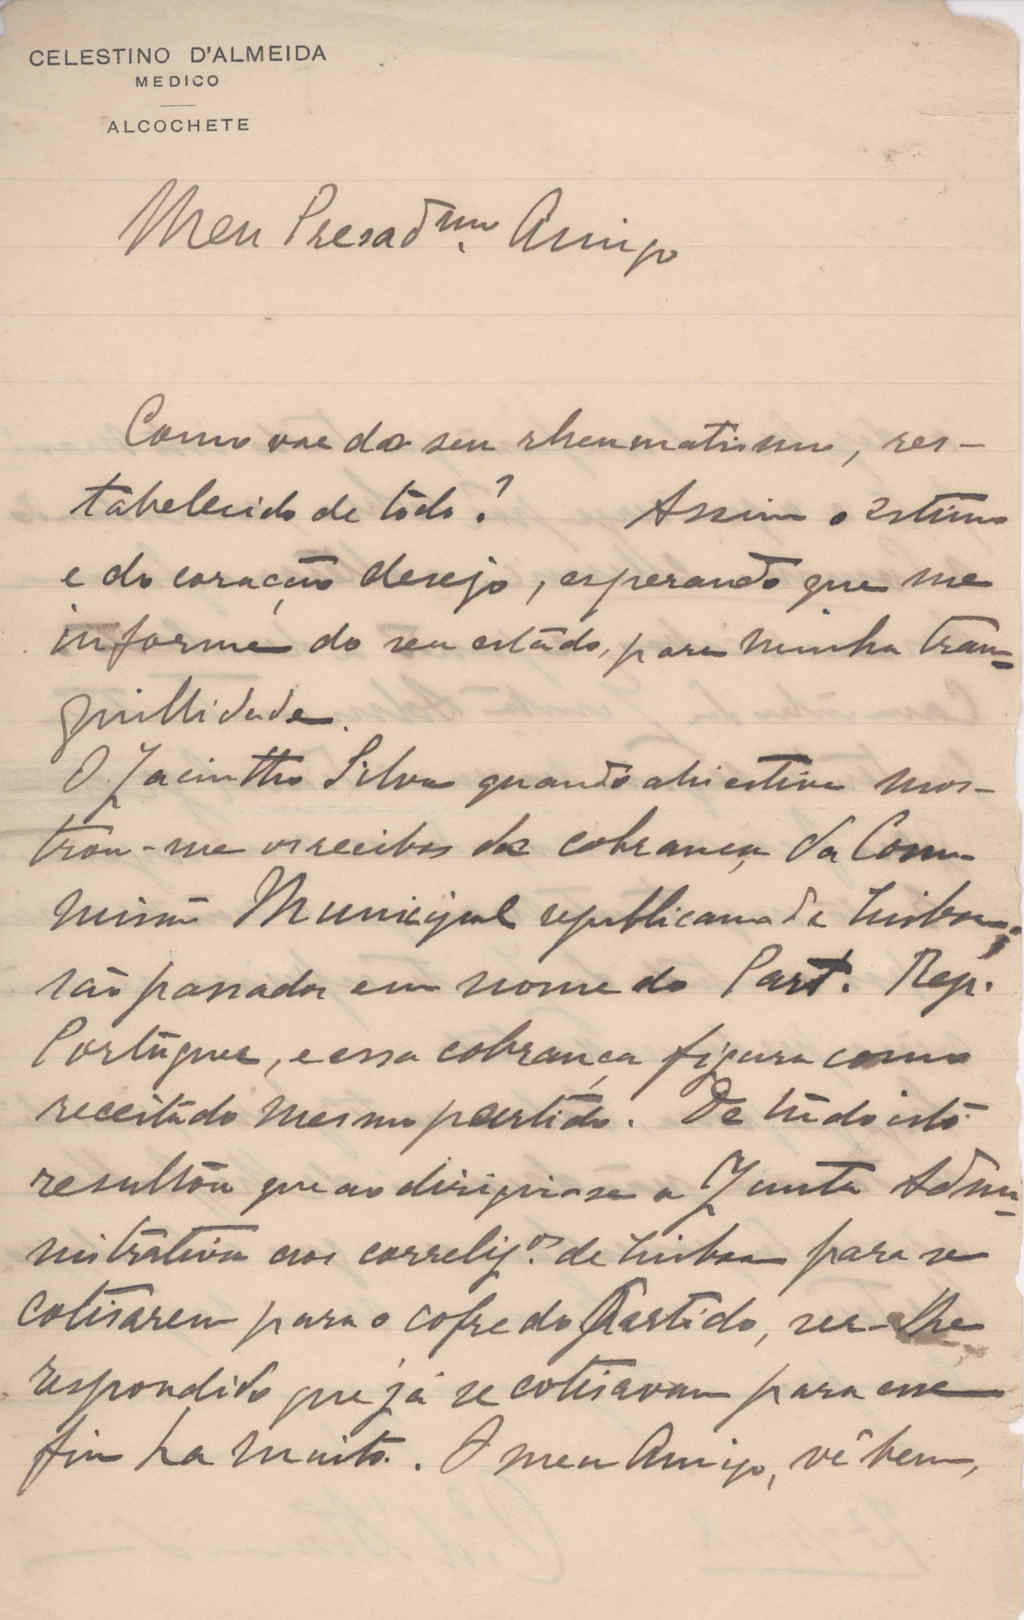 CELESTINO D'ALMEIDA
MEDICO
ALCOCHETE
Meu Presadmo. Amigo
Como vae do seu rheumatismo, res-
tabelecido de todo? Assim o estimo
e do coração desejo, esperando que me
informe do seu estado, para minha tran-
quillidade.
O Jacintho Silva quando ahi estive mos-
trou-me os recibos da cobrança da Com-
missão Municipal republicana de Lisboa;
são passados em nome do Part. Rep.
Portuguez, e essa cobrança figura como
receita do mesmo partido. De tudo isto
resultou que ao dirigir-se a Junta Admi-
nistrativa aos correligos. de Lisboa para se
cotisarem para o cofre do Partido, ser-lhe
respondido que já se cotisavam para esse
fim ha muito. O meu Amigo, vê bem,